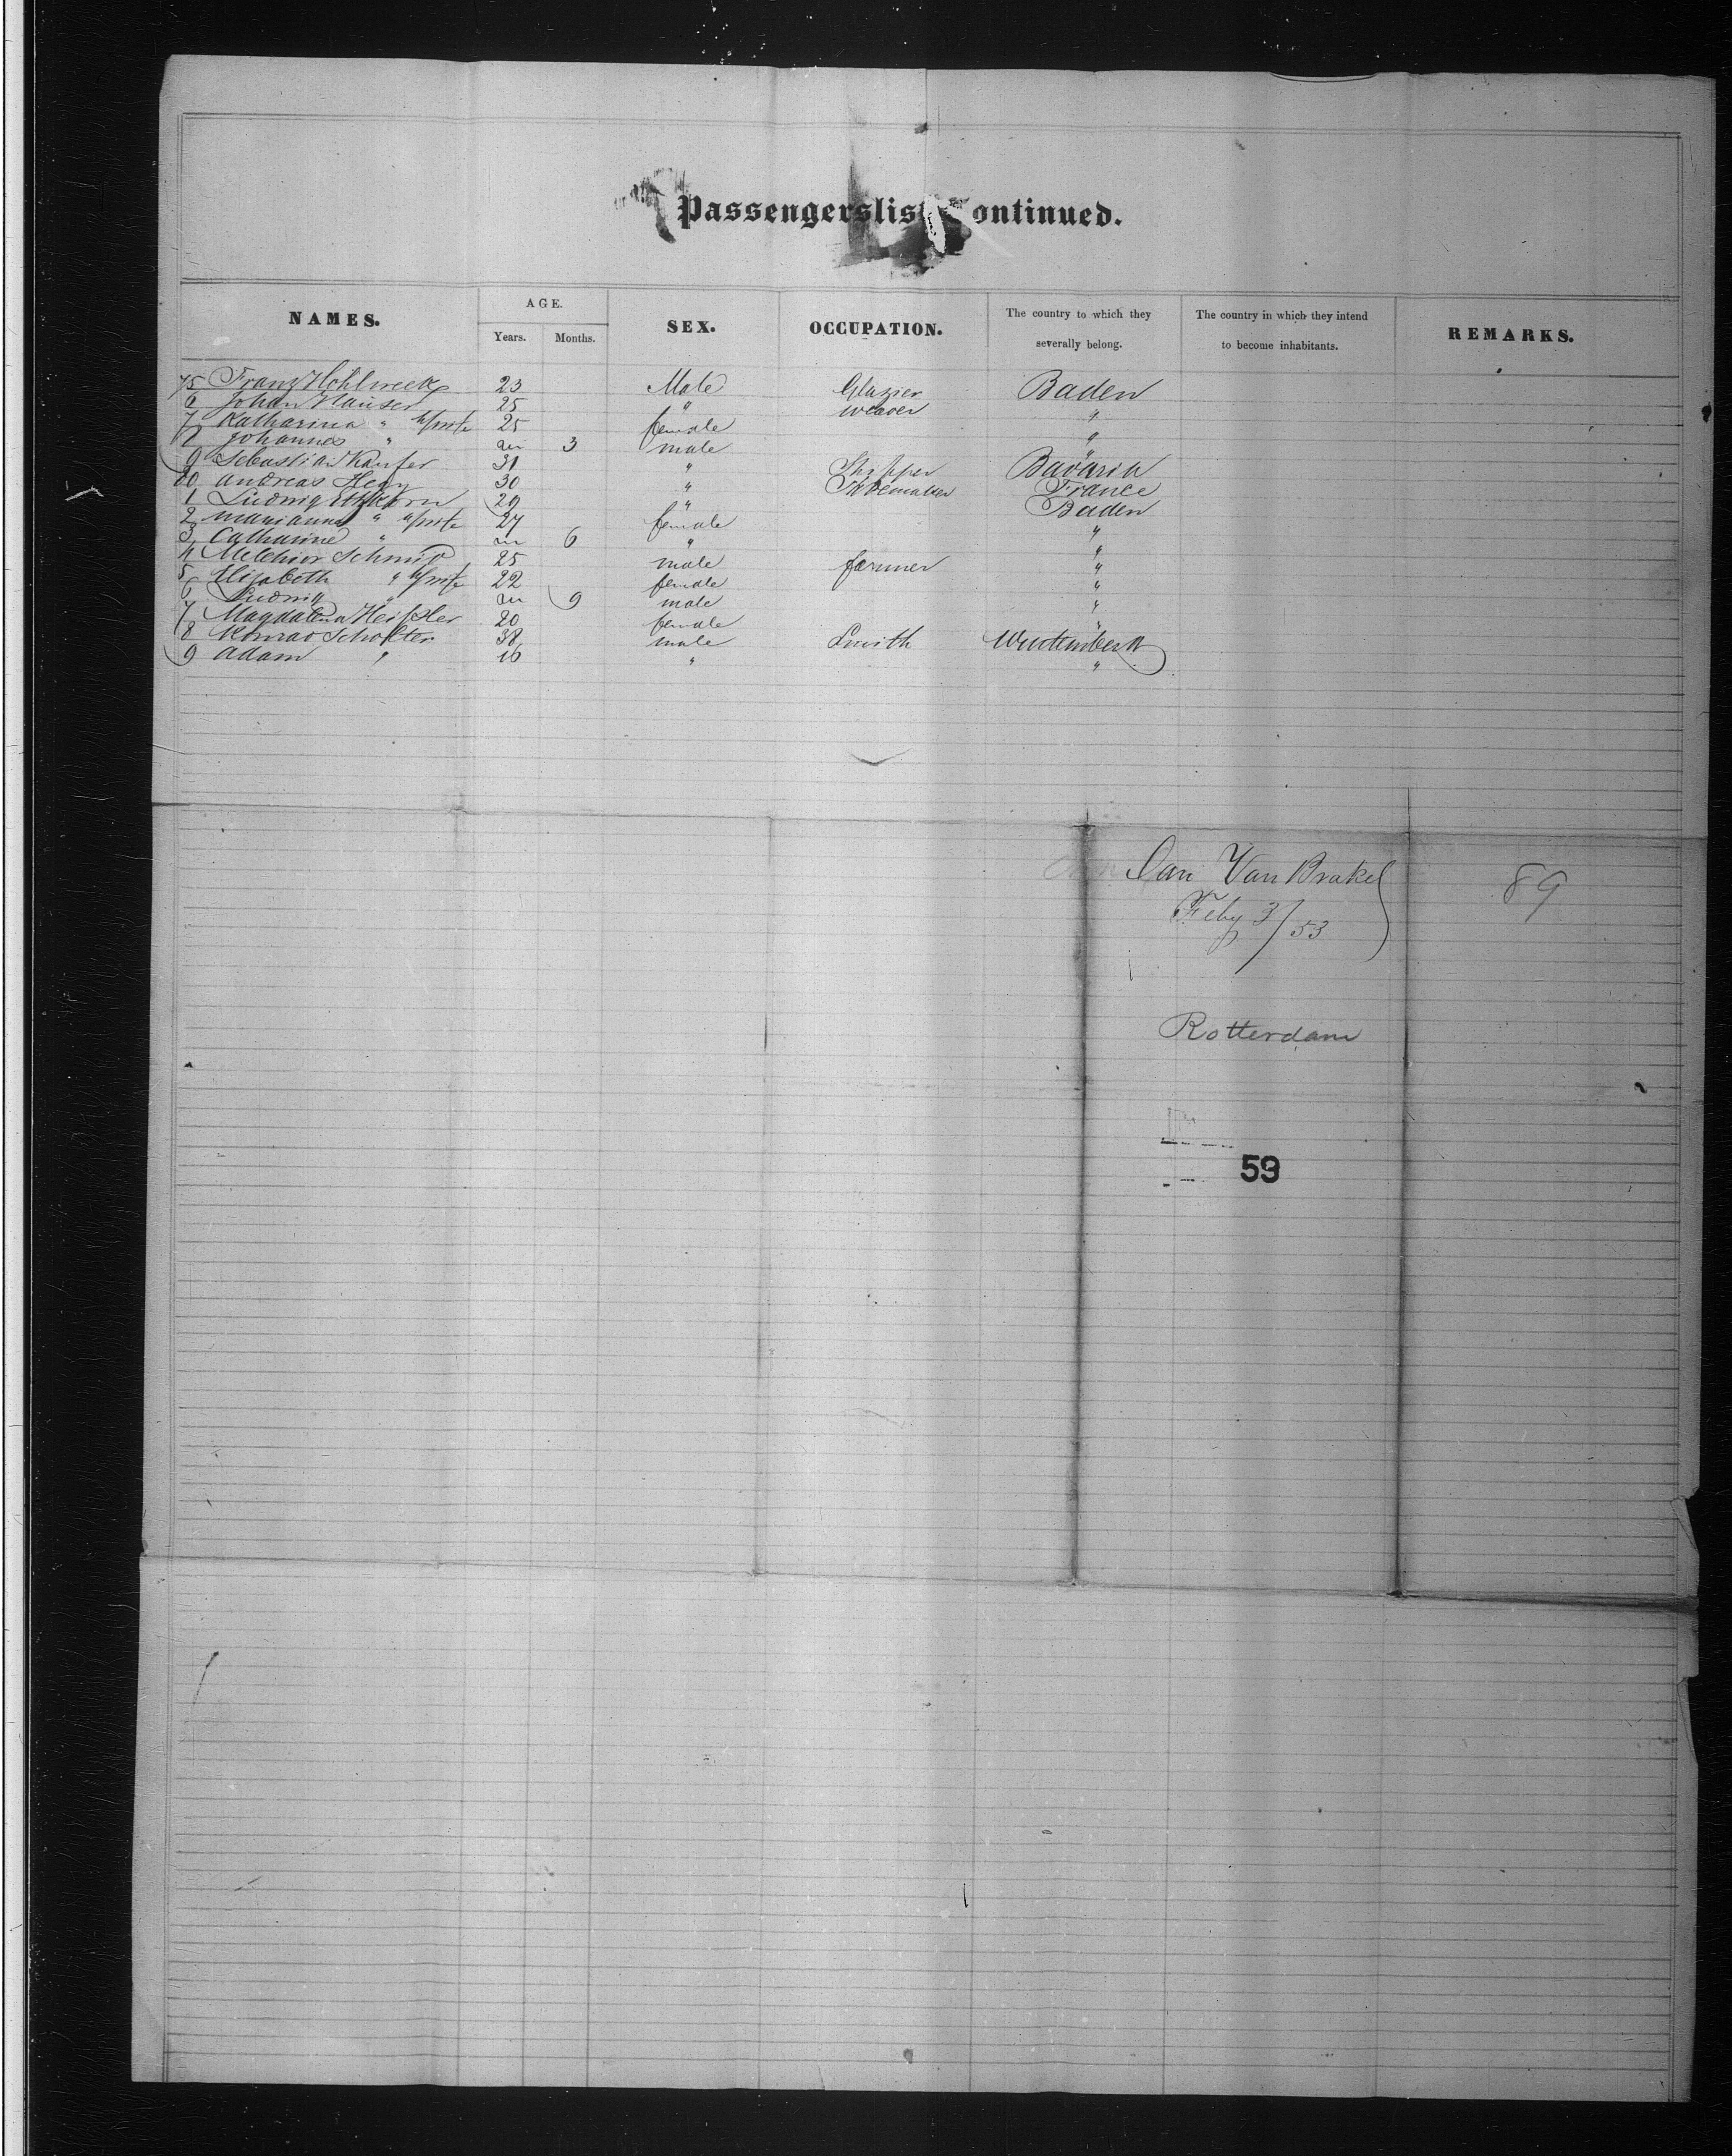 Passengerslis ontinued.
NAMES. AGE. SEX. OCCUPATION. The country to which they severally belong. The country in which they intend to become inhabitants. REMARKS.
Years. Months.
75 Franz Hohlweck 23 Male Glazier Baden
6 Johan Hauser 25 " weaver "
7 Katharina " 25 female "
8 Johannes " 3 male "
9 Sebastian Kaufer 31 " Bavaria
80 Andreas Hegy 30 " Shoemaker France
1 Ludwig Etzkorn 29 " Baden
2 Marianna " 27 female "
3 Catharine " 6 " "
4 Melchior Schmid 25 male farmer "
5 Elisabeth " 22 female "
6 Ludwig " 9 male "
7 Magdalena Heissler 20 female "
8 Konrad Scholter 38 male Smith Wurtemberg
9 Adam " 16 " "
Jan Van Brakel
Feby 3/53
89
Rotterdam
59